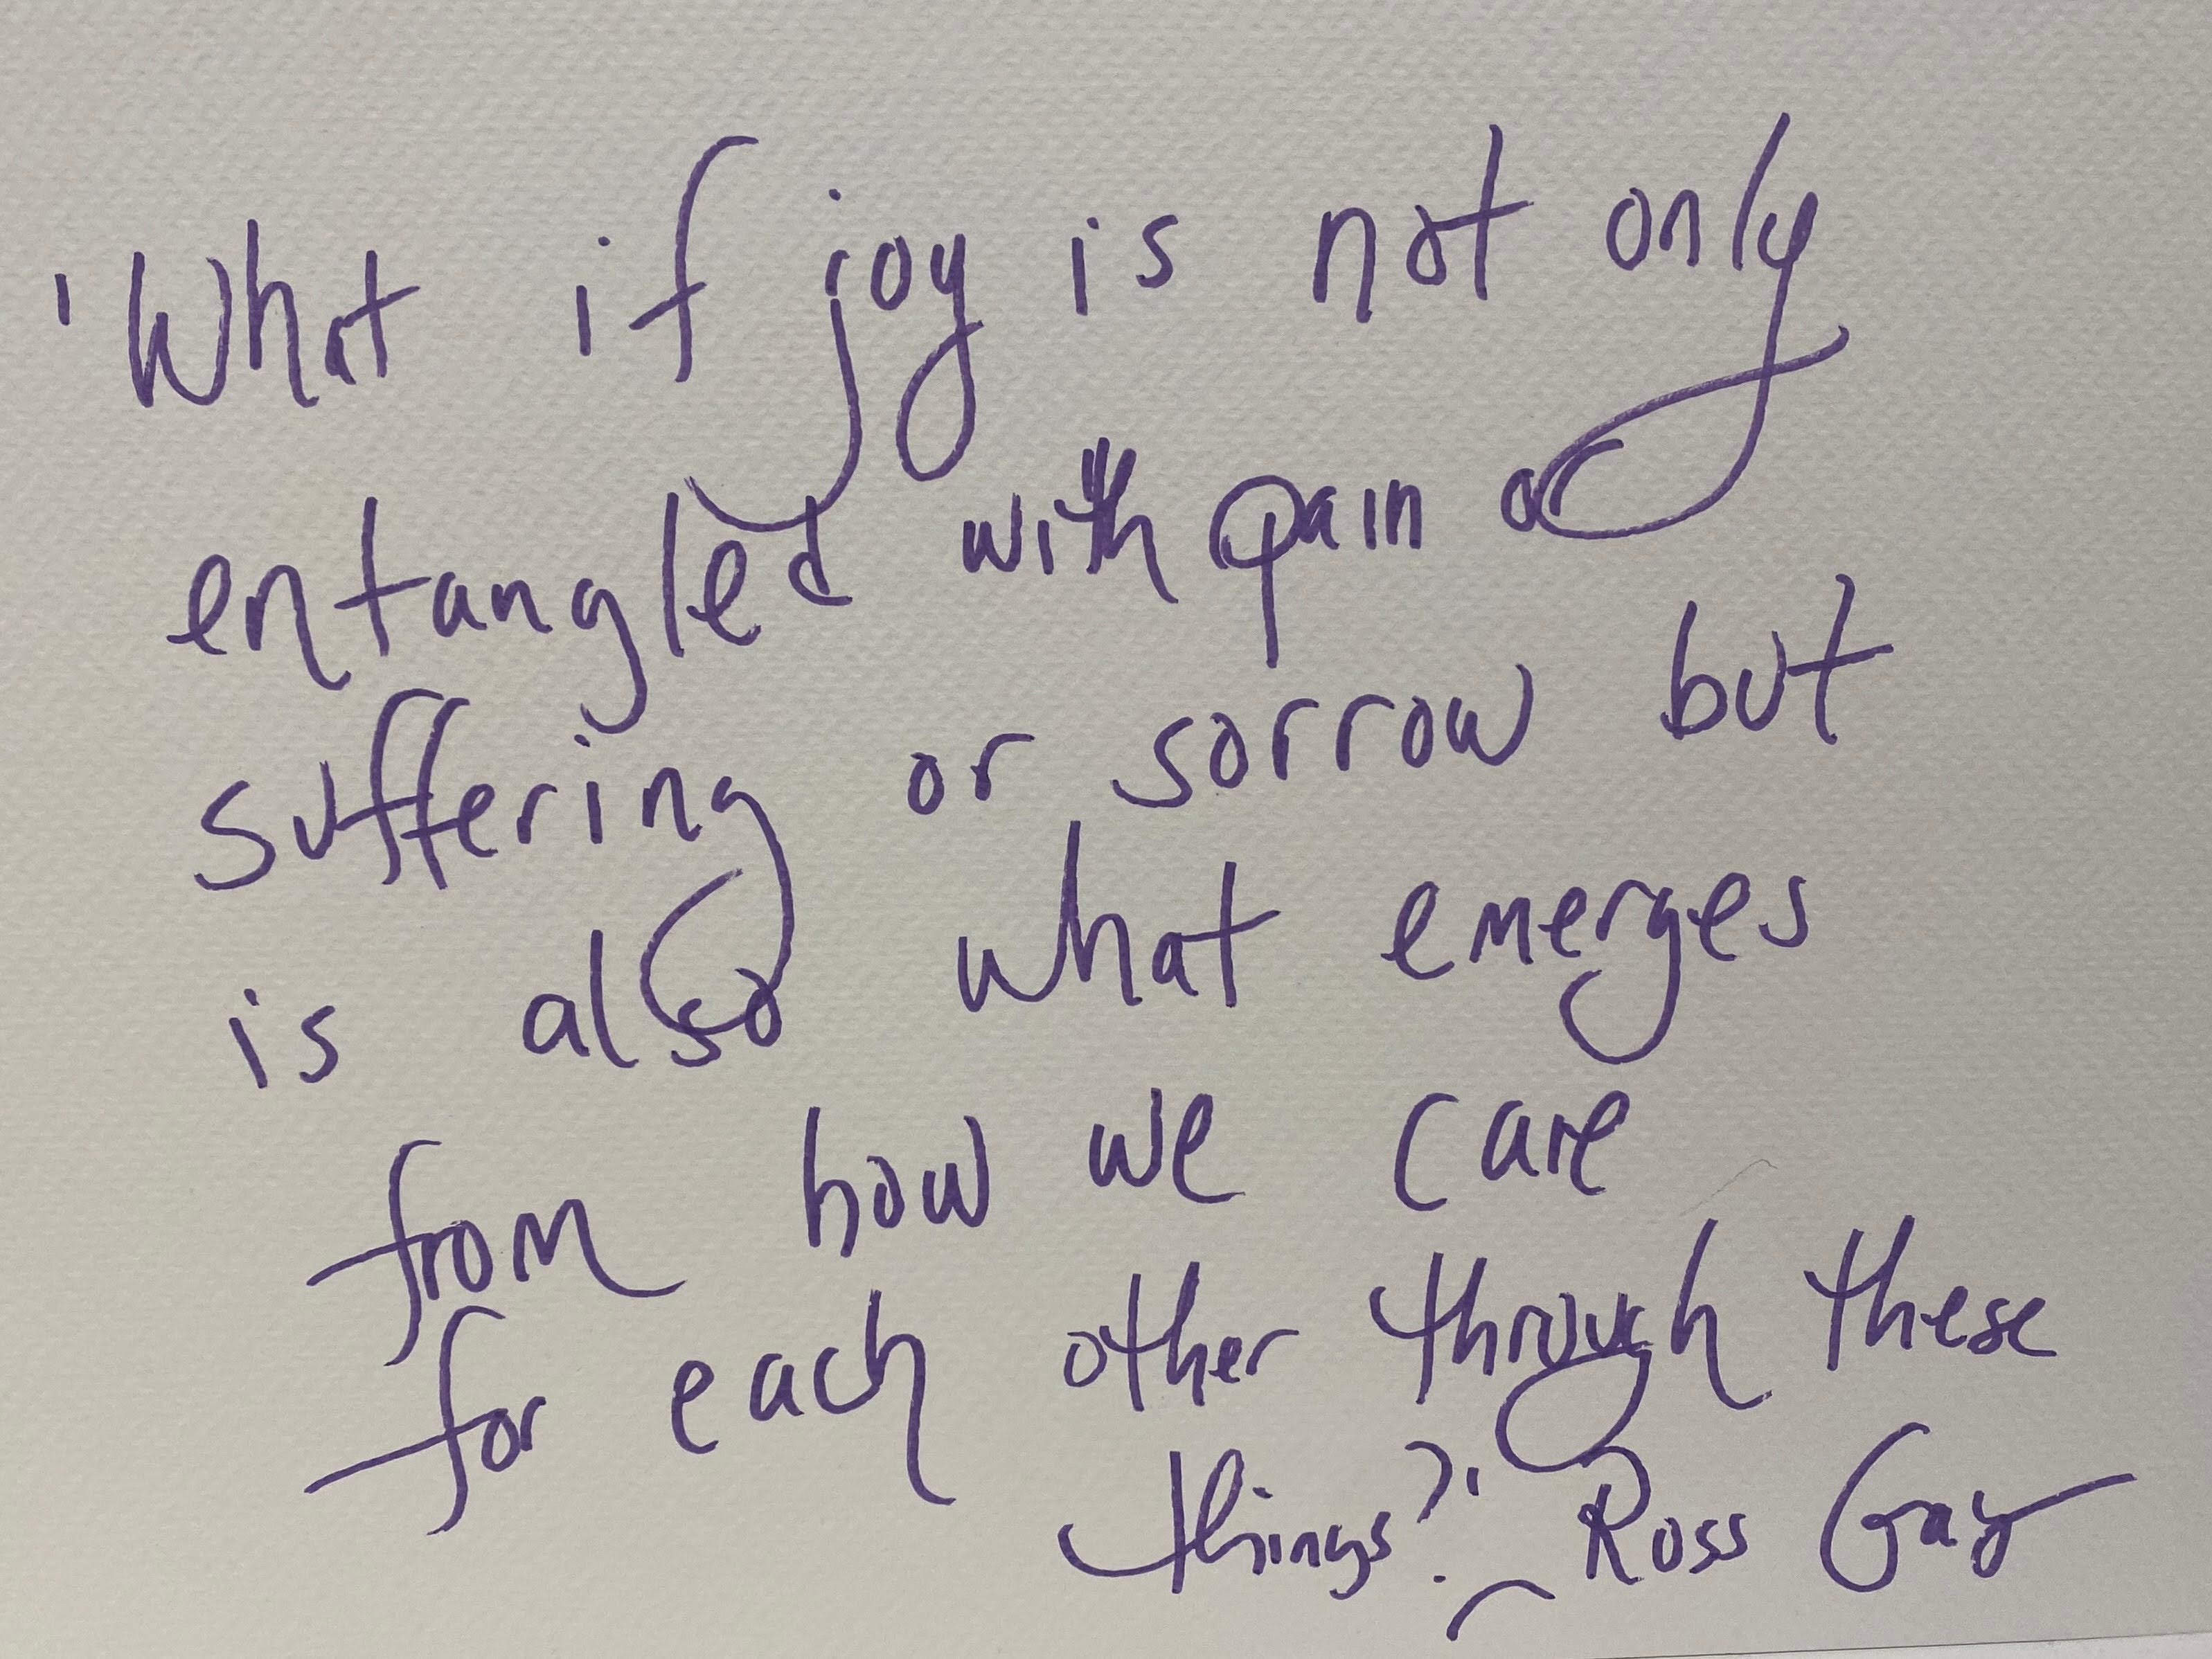 'What if joy is not only
entangled with pain or
suffering or sorrow but
is also what emerges
from how we care
for each other through these
things?' - Ross Gay